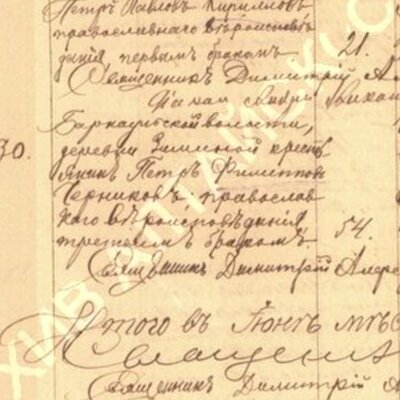 Петръ Павловъ Кирилловъ
православнаго вѣроисповѣ-
данія, первымъ бракомъ 21.
Священникъ Димитрій А
Барнаульской волости,
30. деревни Зиминой крест
янинъ Петръ Филиппов
Черниковъ, православ
наго вѣроисповѣданія,
третьимъ бракомъ 54.
Священникъ Димитрій Андре
Итого въ Іюнѣ мѣс
Священни
Священникъ Димитрій А